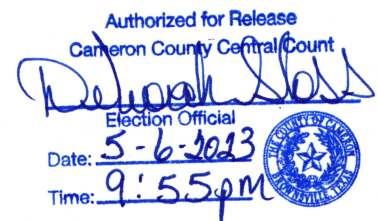 Authorized for Release
Cameron County Central Count
Deborah Sloss
Election Official
Date: 5-6-2023
Time: 9:55pm
THE COUNTY OF CAMERON
BROWNSVILLE, TEXAS